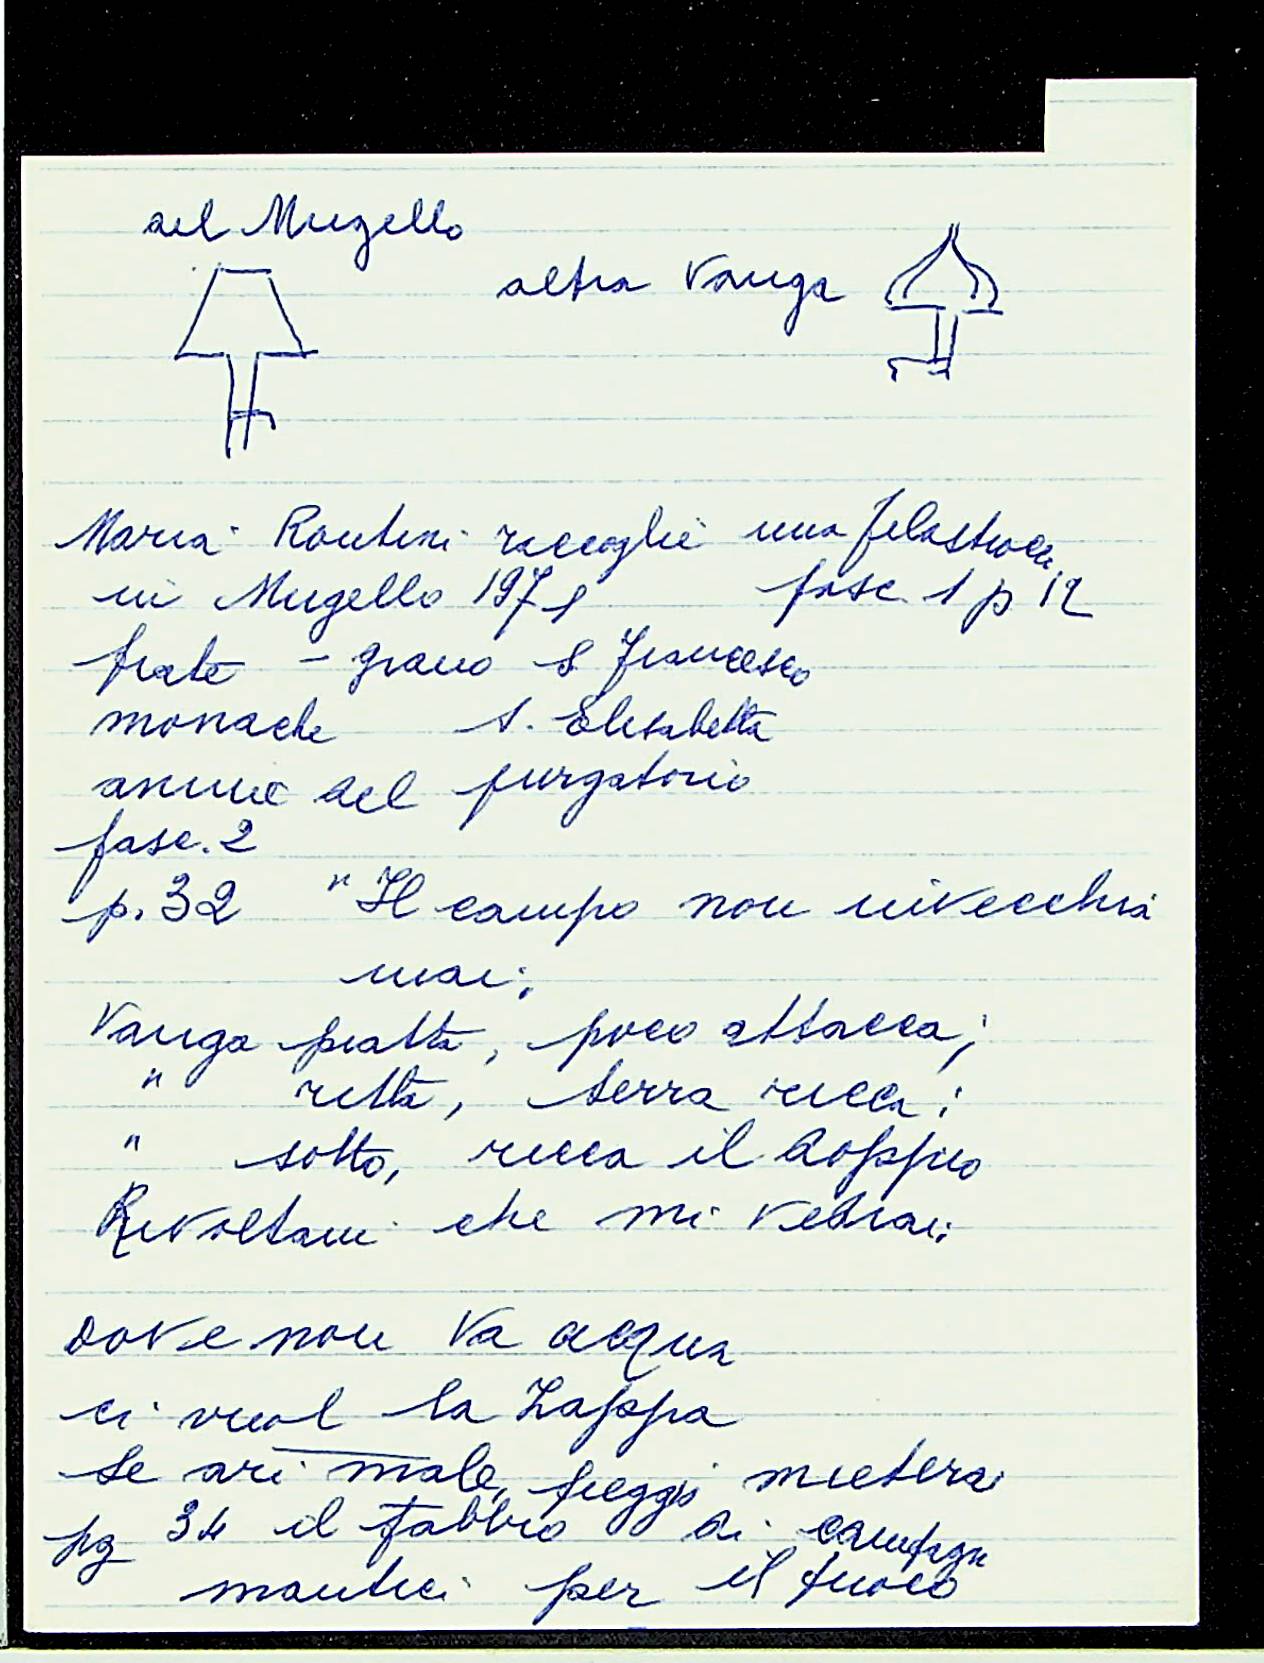 del Mugello
altra Vanga
Maria Rontini raccoglie una filastrocca
in Mugello fasc. 1 p 12
frate - grano S Francesco
monache S. Elisabetta
anime del purgatorio
fasc. 2
p. 32 "Il campo non invecchia
mai;
Vanga piatta, poco attacca;
" ritta, terra ricca;
" sotto, ricca il doppio
Rivoltami che mi vedrai;
Dove non va acqua
ci vuol la Zappa
Se ari male, peggio mieterai
pg 34 il fabbro di campagna
mantici per il fuoco